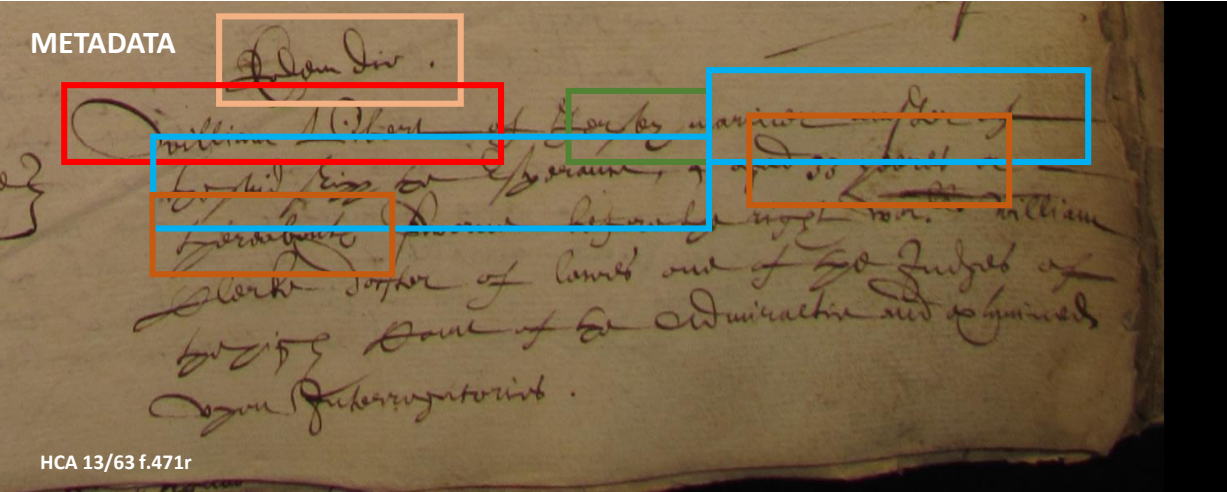 METADATA
Eodem die .
William Lilbert of Jersey mariner master of
the said shipp the Esperance, aged 30 yeares or
thereabouts sworne before the right wor:ll William
Clerke Doctor of lawes one of the Judges of
the high Court of the Admiraltie and examined
upon Interrogatories .
HCA 13/63 f.471r